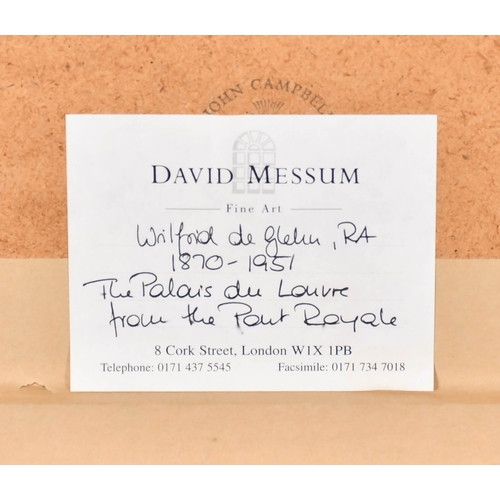 JOHN CAMPBELL
DAVID MESSUM
Fine Art
Wilfrid de Glehn, RA
1870-1951
The Palais du Louvre
from the Pont Royale
8 Cork Street, London W1X 1PB
Telephone: 0171 437 5545 Facsimile: 0171 734 7018